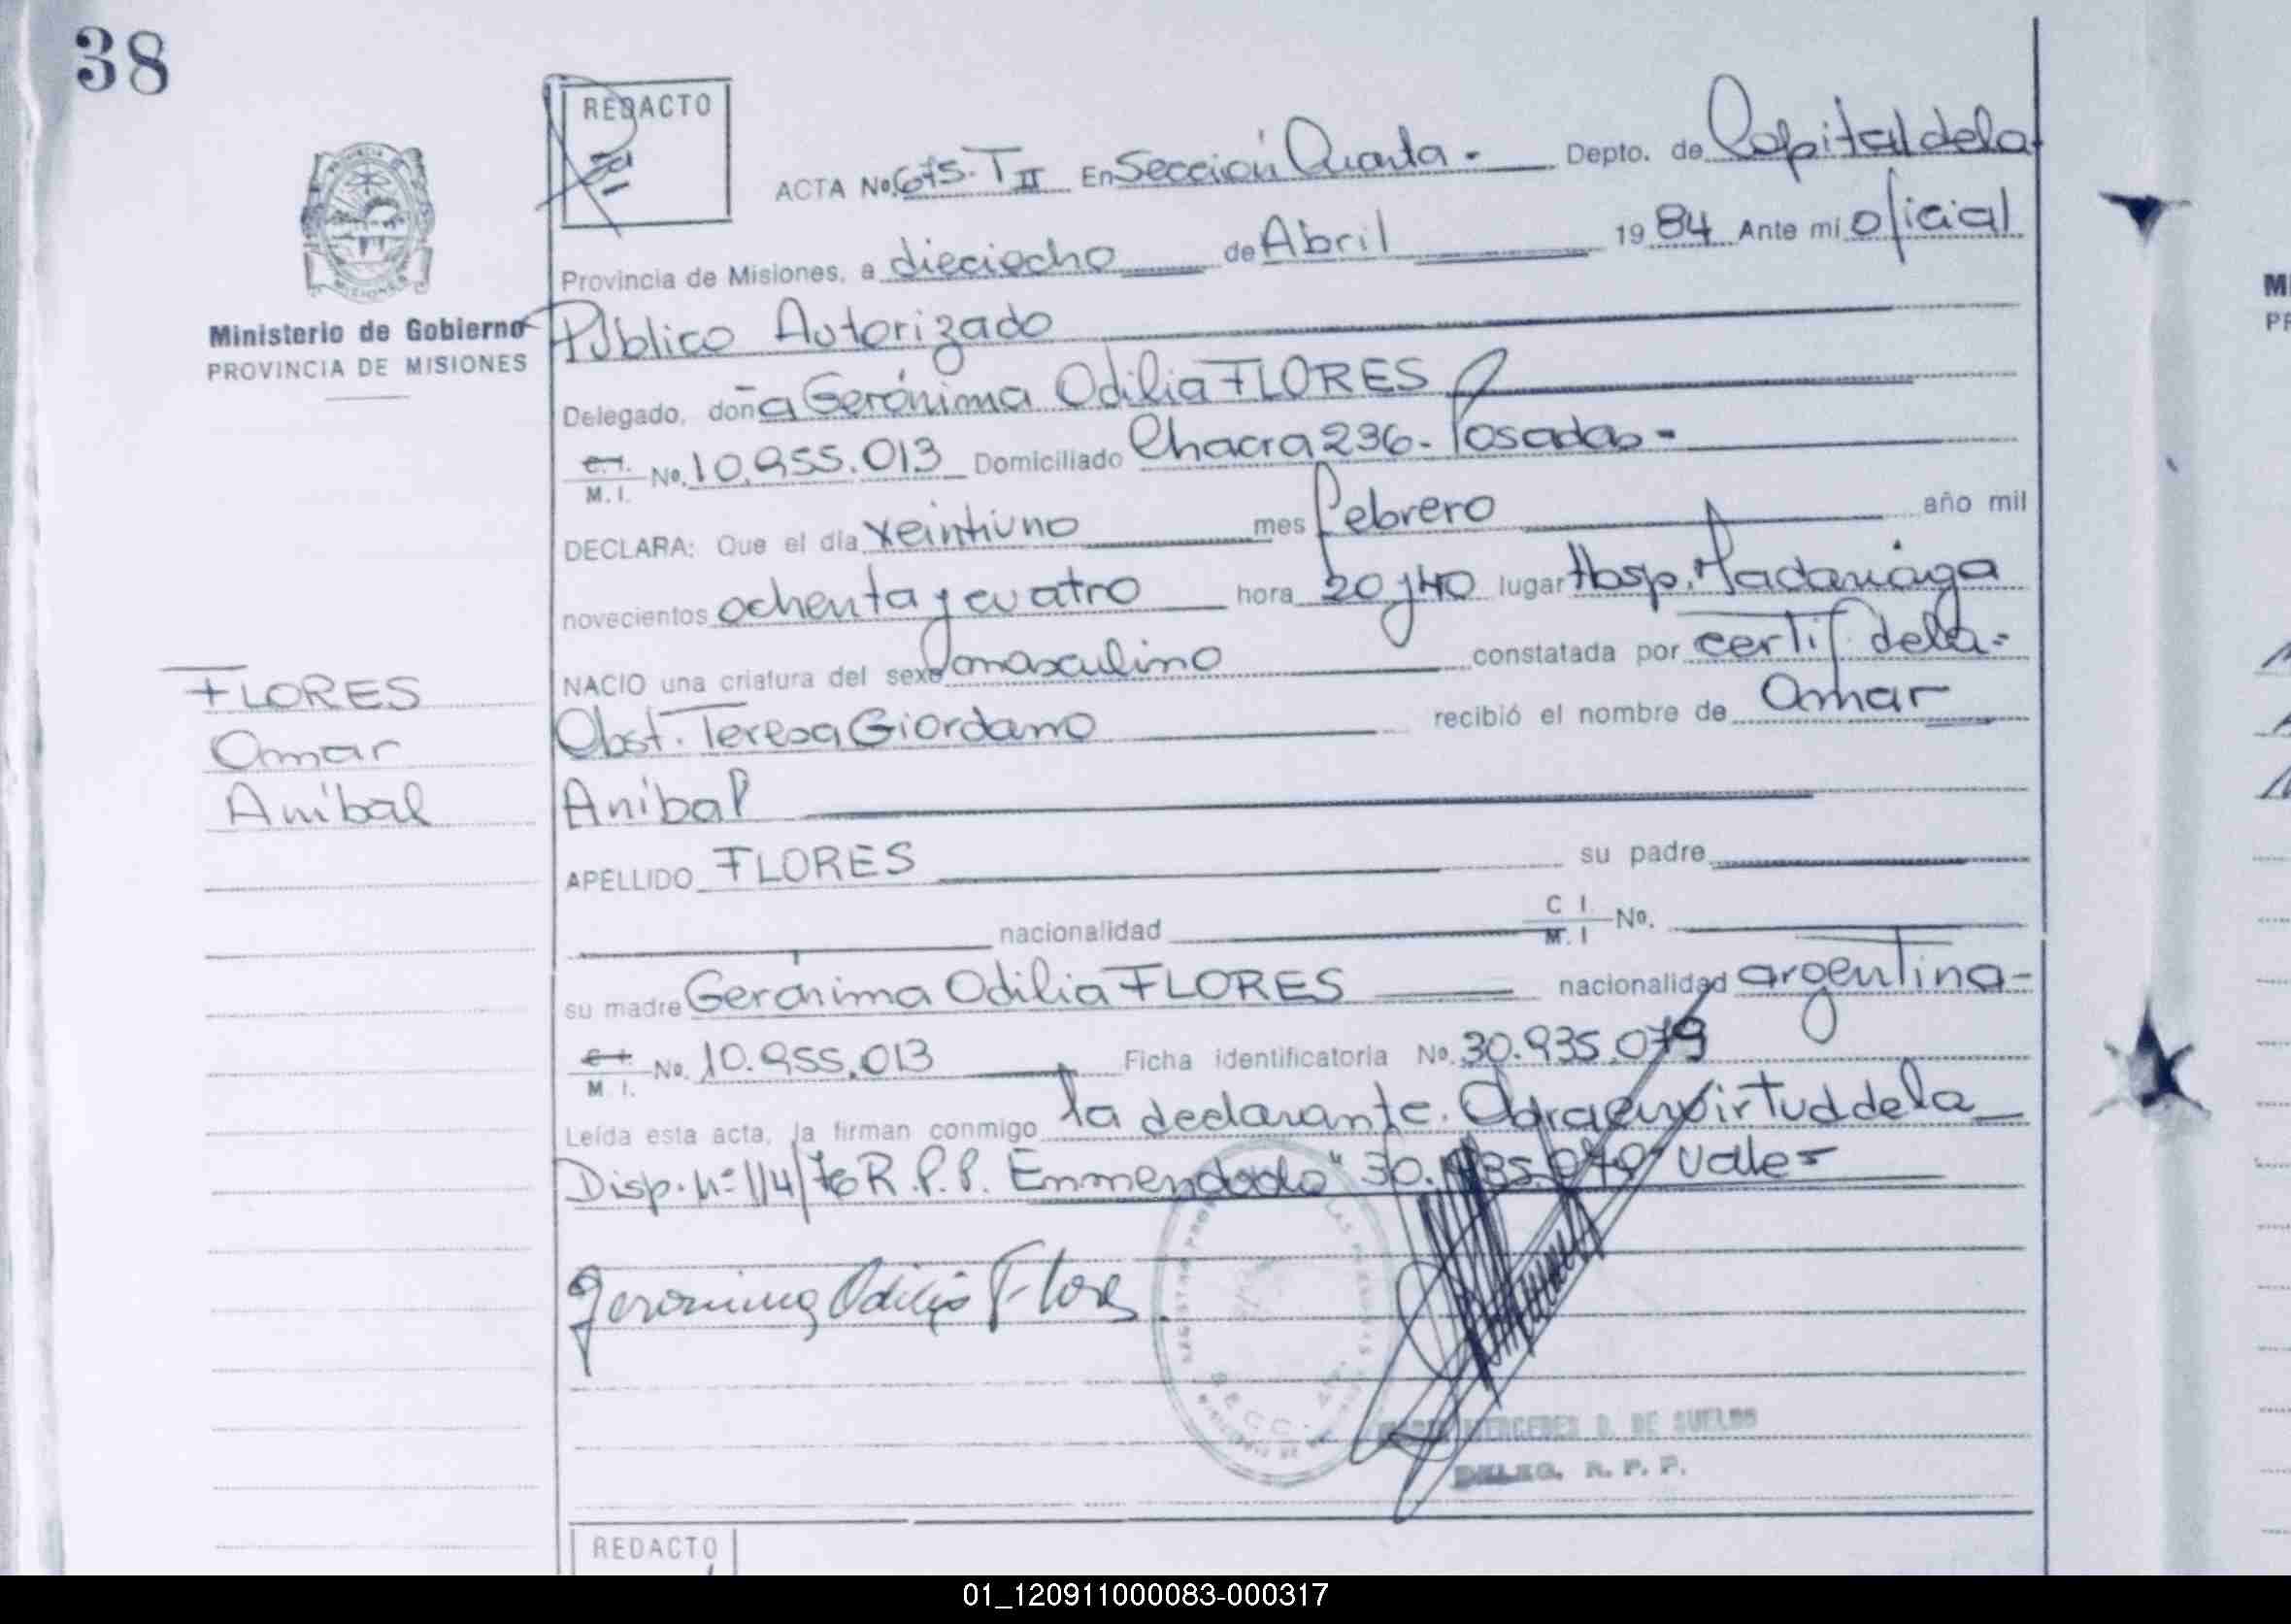 38
REDACTO
ACTA No. 675. T II En Sección Cuarta. Depto. de Capital de la
Provincia de Misiones, a dieciocho de Abril 1984 Ante mi Oficial
Ministerio de Gobierno
PROVINCIA DE MISIONES
Público Autorizado
Delegado, doña Gerónima Odilia FLORES
C.I. M.I. No. 10.955.013 Domiciliado Chacra 236- Posadas-
DECLARA: Que el día veintiuno mes Febrero año mil
novecientos ochenta y cuatro hora 20 y 40 lugar Hosp. Madariaga
NACIO una criatura del sexo masculino constatada por certif de la-
Obst. Teresa Giordano recibió el nombre de Omar
Aníbal
FLORES
Omar
Aníbal
APELLIDO FLORES su padre
nacionalidad C I. M. I No.
su madre Gerónima Odilia FLORES nacionalidad argentina-
C.I. M I. No. 10.955.013 Ficha identificatoria No. 30.935.079
Leída esta acta, la firman conmigo la declarante. Obra en virtud de la
Disp. Nº 114/76 R.P.P. Enmendado "30.935.079" Vale-
Geronima Odilia Flores.
SECC. 4ta.
MERCEDES D. DE SUELDO
DELEG. R. P. P.
REDACTO
01_120911000083-000317